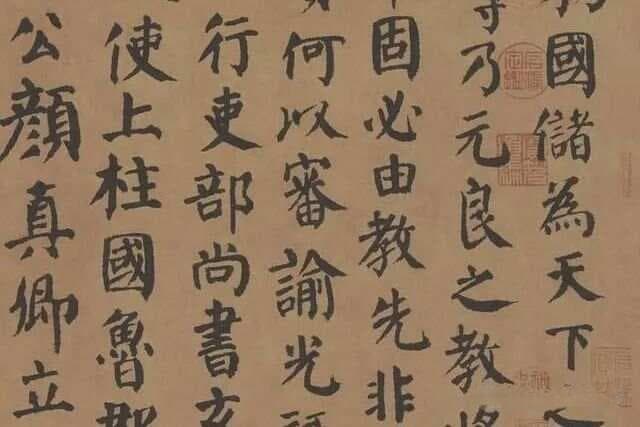 國儲為天下
乃元良之教將
固必由教先非
何以審諭光
行吏部尚書充
使上柱國魯郡
公顏真卿立